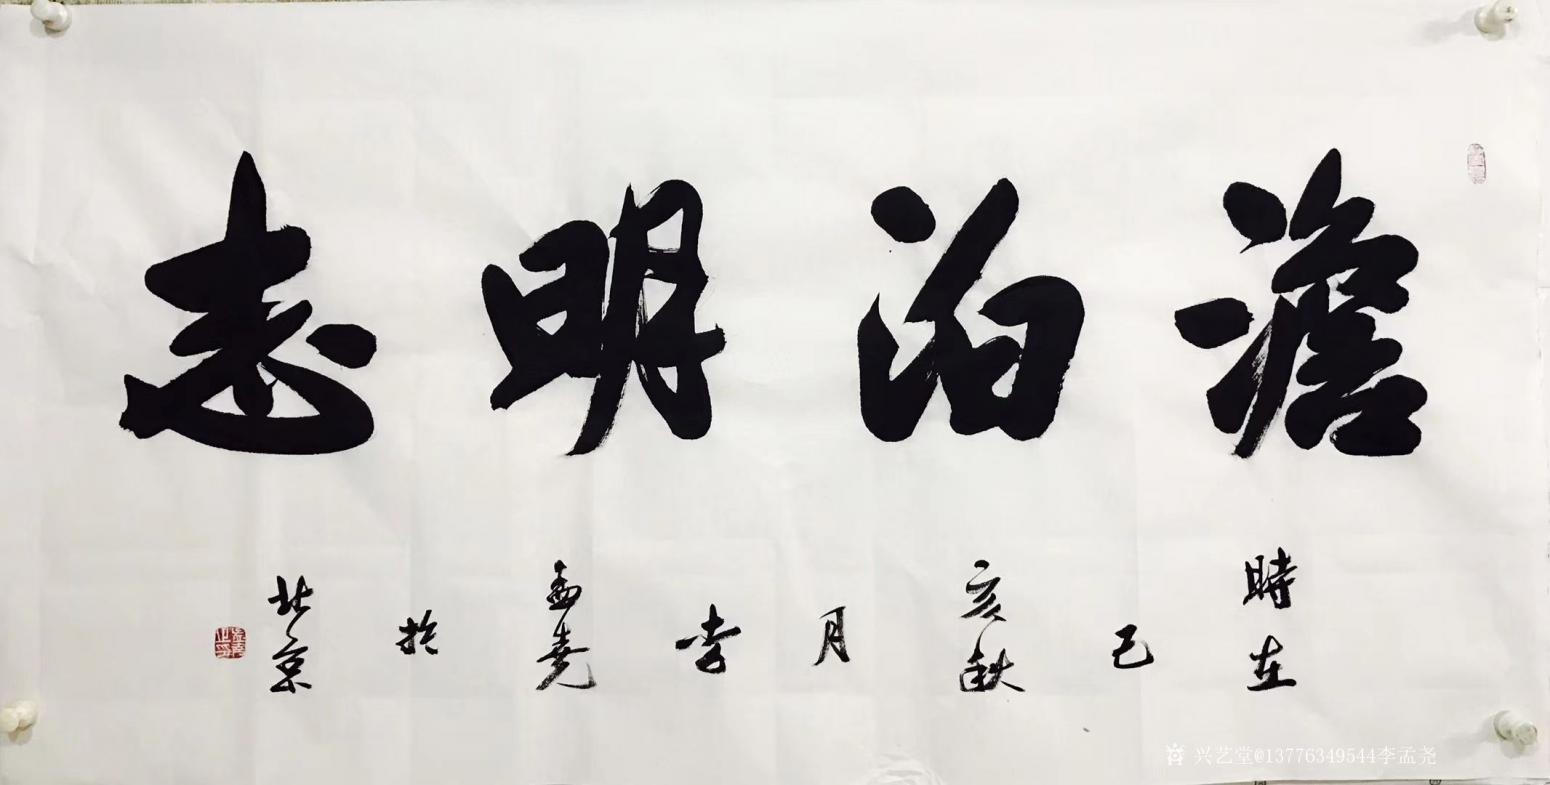 澹泊明志
時在己亥秋月李孟堯於北京
兴艺堂@13776349544李孟尧